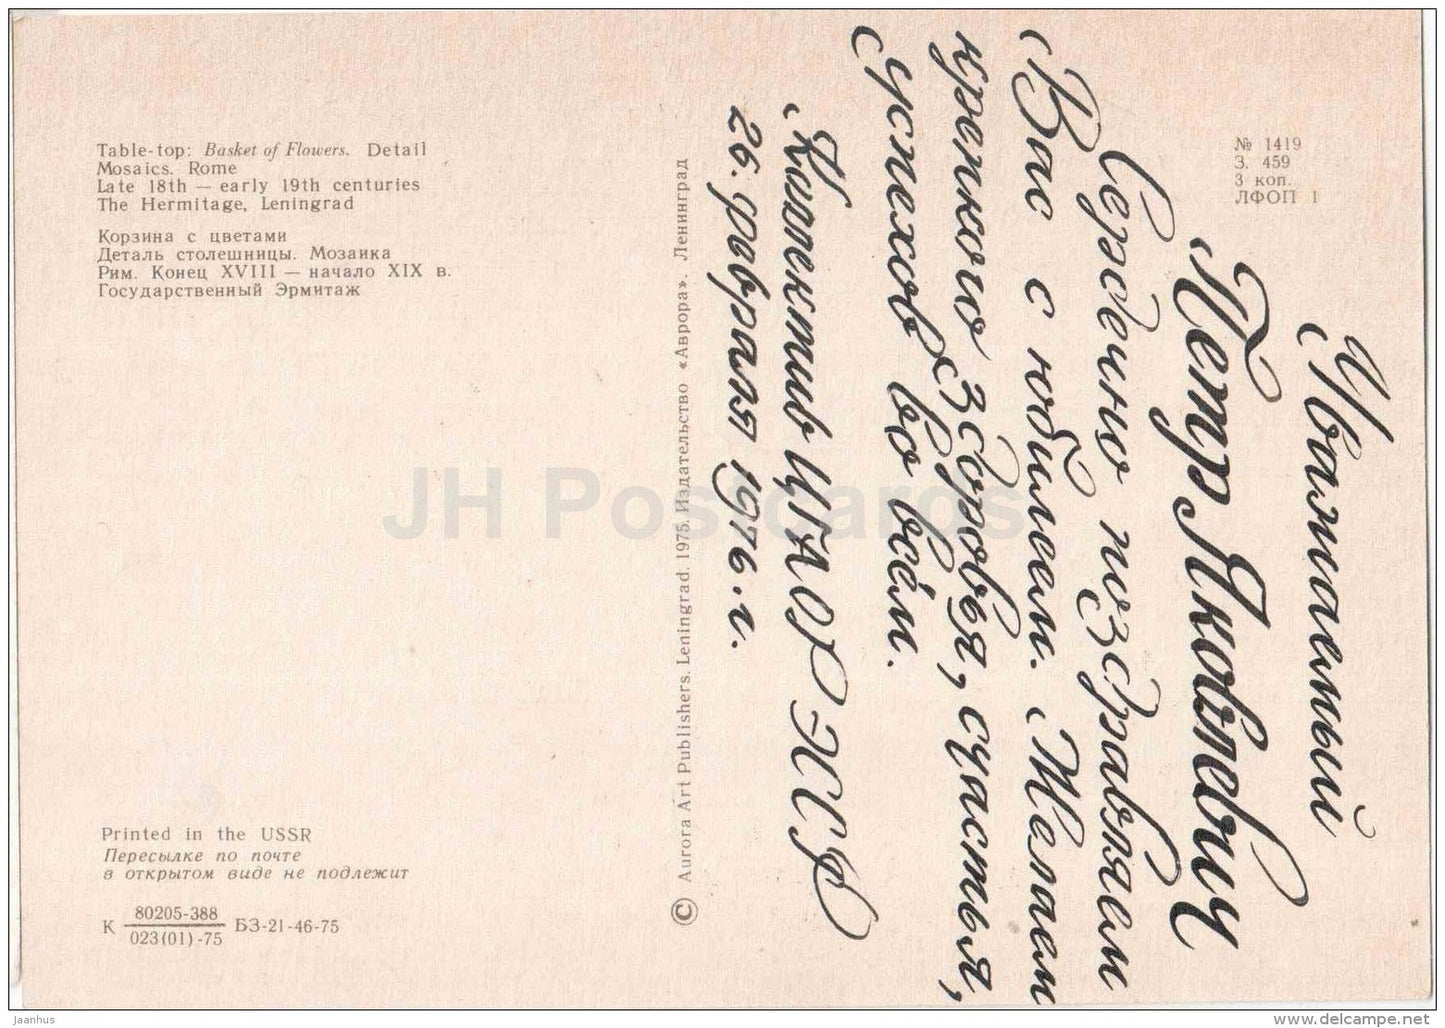 Table-top: Basket of Flowers. Detail
Mosaics. Rome
Late 18th — early 19th centuries
The Hermitage, Leningrad
Корзина с цветами
Деталь столешницы. Мозаика
Рим. Конец XVIII — начало XIX в.
Государственный Эрмитаж
Printed in the USSR
Пересылке по почте
в открытом виде не подлежит
К 80205-388 БЗ-21-46-75
023(01)-75
© Aurora Art Publishers. Leningrad. 1975. Издательство «Аврора». Ленинград
№ 1419
З. 459
3 коп.
ЛФОП 1
Уважаемый
Петр Яковлевич
Сердечно поздравляем
Вас с юбилеем. Желаем
крепкого здоровья, счастья,
успехов во всём.
Коллектив ЦГАОР ЭССР
26. февраля 1976. г.
JH Postcards
jaanhus
www.delcampe.net